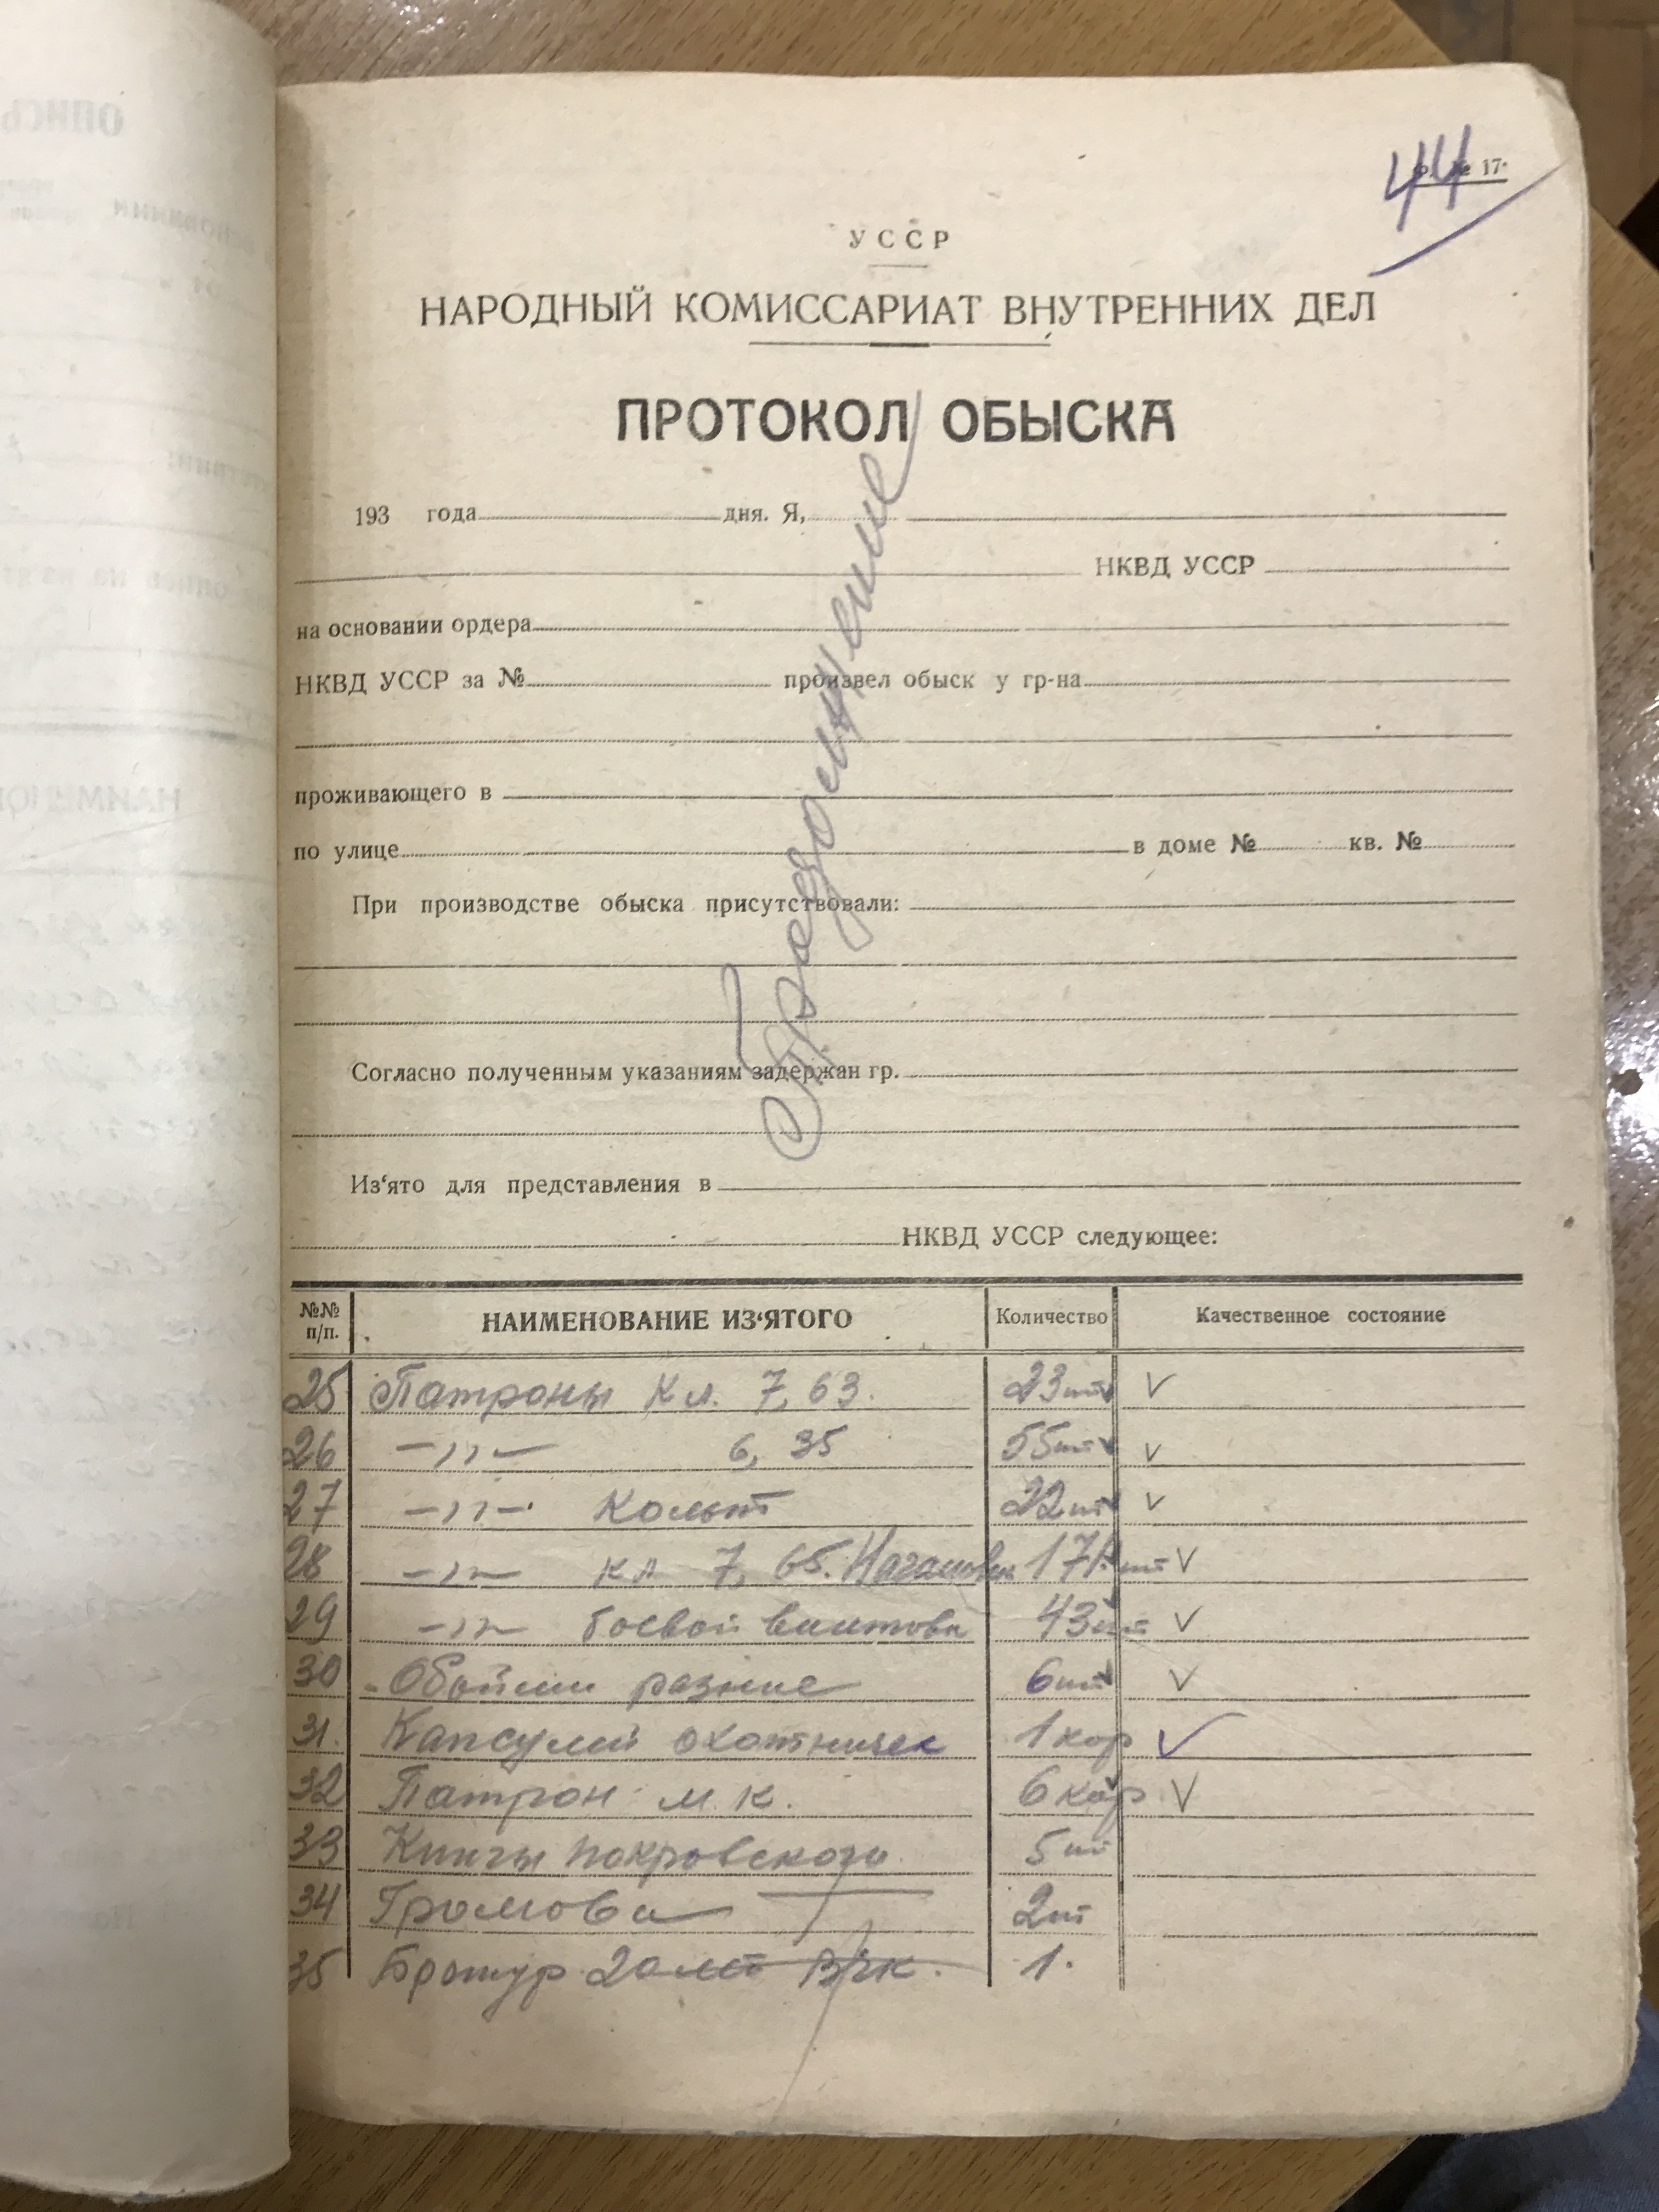 44
Ф. № 17.
УССР
НАРОДНЫЙ КОМИССАРИАТ ВНУТРЕННИХ ДЕЛ
ПРОТОКОЛ ОБЫСКА
Продолжение
193 года дня. Я,
НКВД УССР
на основании ордера
НКВД УССР за № произвел обыск у гр-на
проживающего в
по улице в доме № кв. №
При производстве обыска присутствовали:
Согласно полученным указаниям задержан гр.
Из‘ято для представления в
НКВД УССР следующее:
№№ п/п. НАИМЕНОВАНИЕ ИЗ‘ЯТОГО Количество Качественное состояние
25 Патроны кл. 7,63. 23 шт
26 —〃— 6,35 55 шт
27 —〃— Кольт 22 шт
28 —〃— кл 7,65. шт
29 —〃— боевой винтовк 43 шт
30 Обоймы разные 6 шт
31. Капсулей охотничек 1 кор
32 Патрон м.к. 6 кор
33 Книги Покровского 5 шт
34 Громова 2 шт
35 Брошур 20 лет ВЧК. 1.
ОПИСЬ